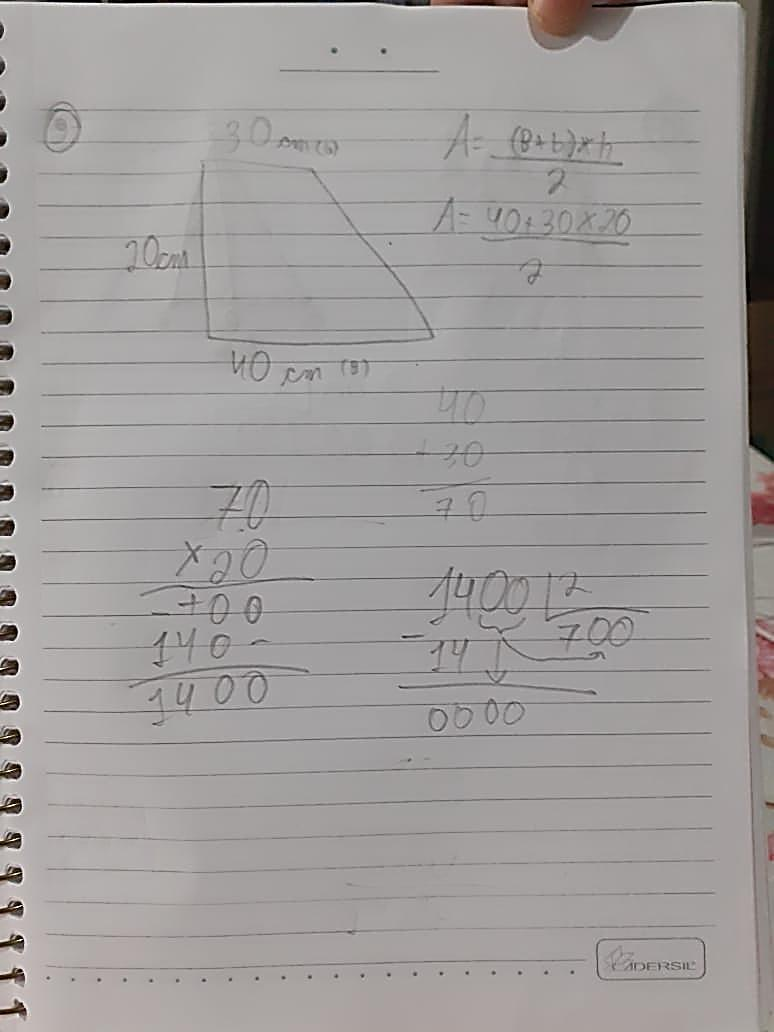 9
30 cm (b)
20cm
40 cm (B)
A= (B+b)×h
2
A= 40+30×20
2
40
+30
70
70
×20
+00
140-
1400
1400 2
-14 700
0000
DERSIL